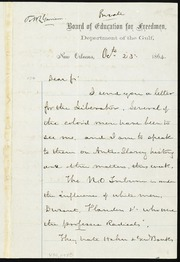 Board of Education for Freedmen,
Department of the Gulf,
New Orleans, Octo 23d 1864.
Dear Sir
I send you a letter
for the Liberator. Several of
the colored men have been to
see me, and I am to speak
to them on Anti Slavery history
and other matters this week.
The N.O. Tribune is under
the influence of white men,
Durant, Flanders & others who are
the professed Radicals.
They hate Hahn & Gen Banks